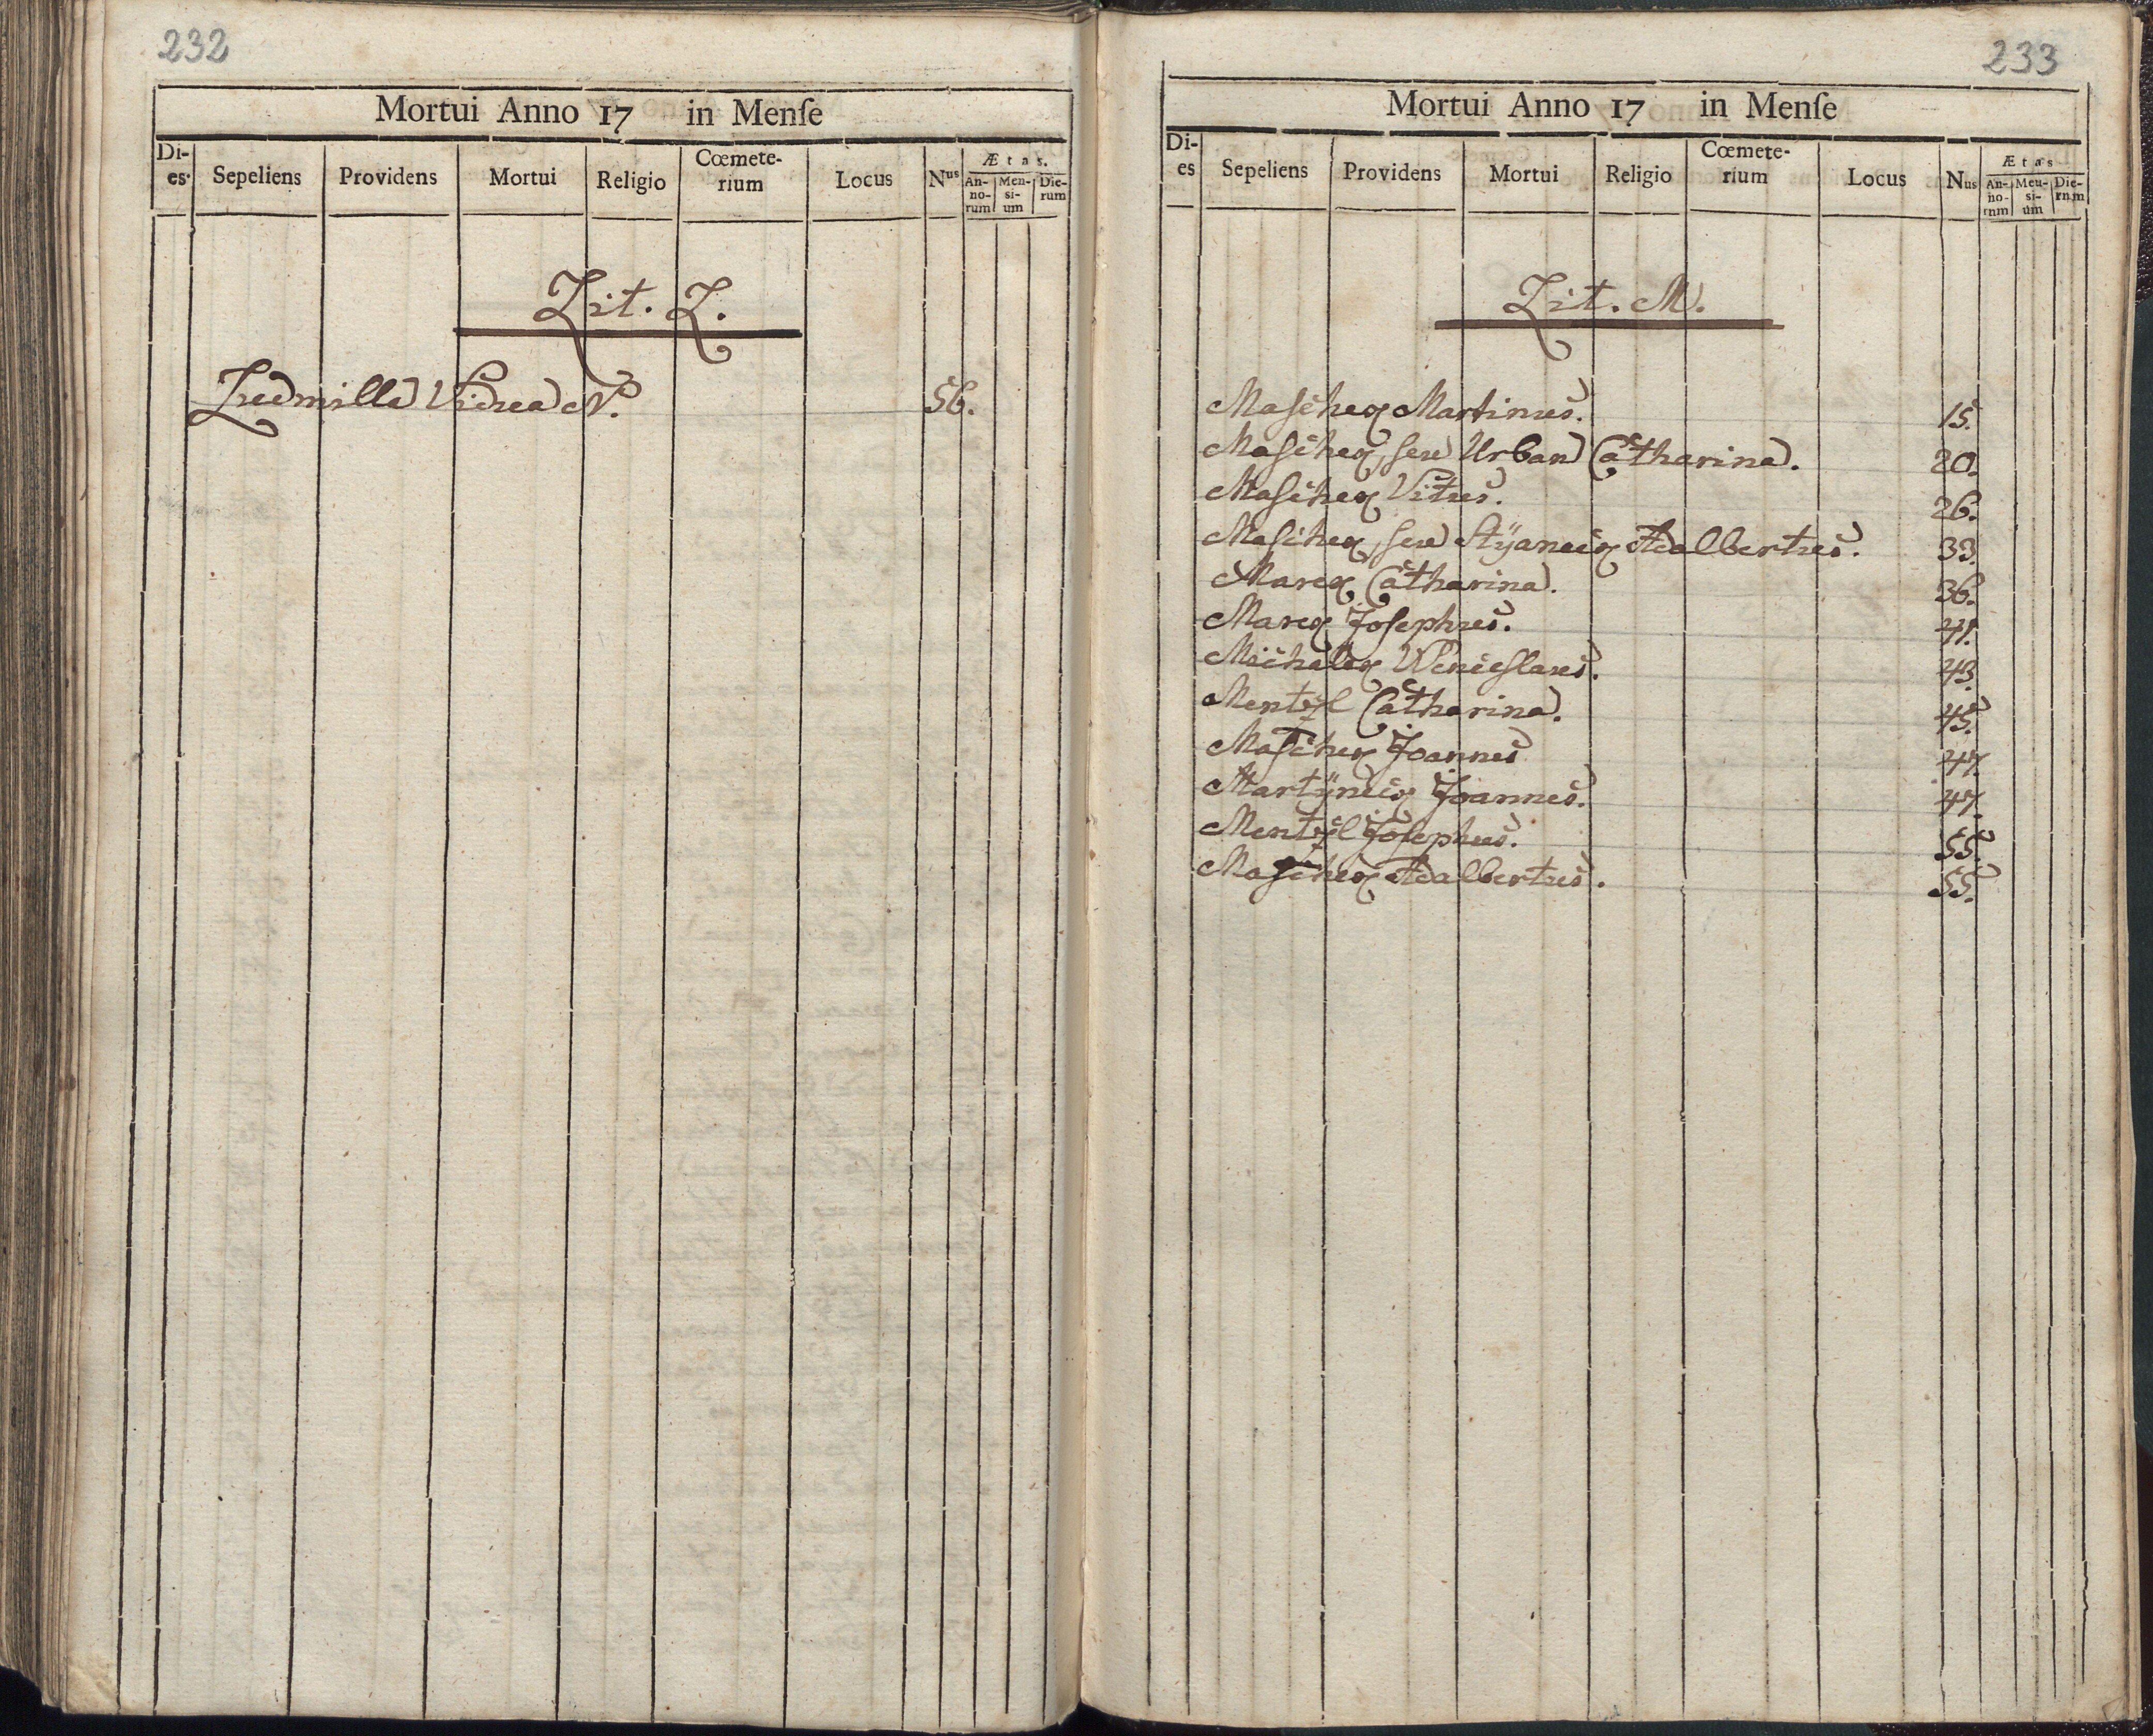 232
Mortui Anno 17 in Menſe
Di-
es.
Sepeliens
Providens
Mortui
Religio
Cœmete-
rium
Locus
Nus
Ætas.
An-
no-
rum
Men-
si-
um
Die-
rum
Lit. L.
Ludmilla Vidua N. 56.
233
Mortui Anno 17 in Menſe
Di-
es
Sepeliens
Providens
Mortui
Religio
Cœmete-
rium
Locus
Nus
Ætas
An-
no-
rnm
Meu-
si-
um
Die-
rnm
Lit. M.
Maſchek Martinus. 15.
Maſchek, ſeu Urban Catharina. 20.
Maſchek Vitus. 26.
Maſchek, ſeu Adalbertus. 33.
Marek Catharina. 36.
Marek Joſephus. 41.
Michalek Wenceſlaus. 43.
Mentzl Catharina. 45.
Maſchek Joannes 47.
Martÿnek Joannes. 47.
Mentzl Joſephus. 55.
Maſchek Adalbertus. 55.